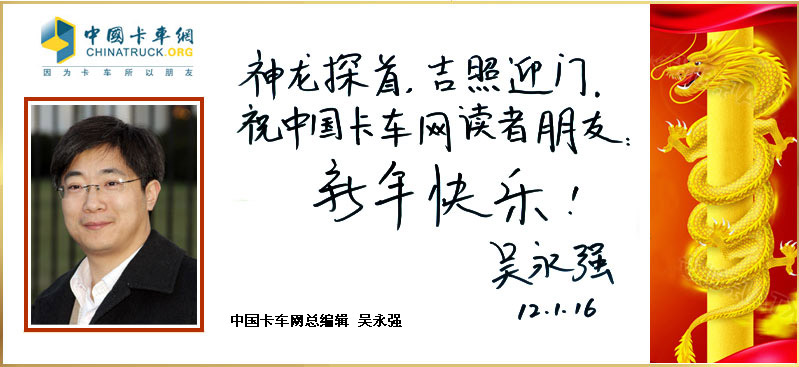 中國卡車網
CHINATRUCK.ORG
因为卡车所以朋友
神龙探首,吉照迎门.
祝中国卡车网读者朋友:
新年快乐!
吴永强
12.1.16
中国卡车网总编辑 吴永强